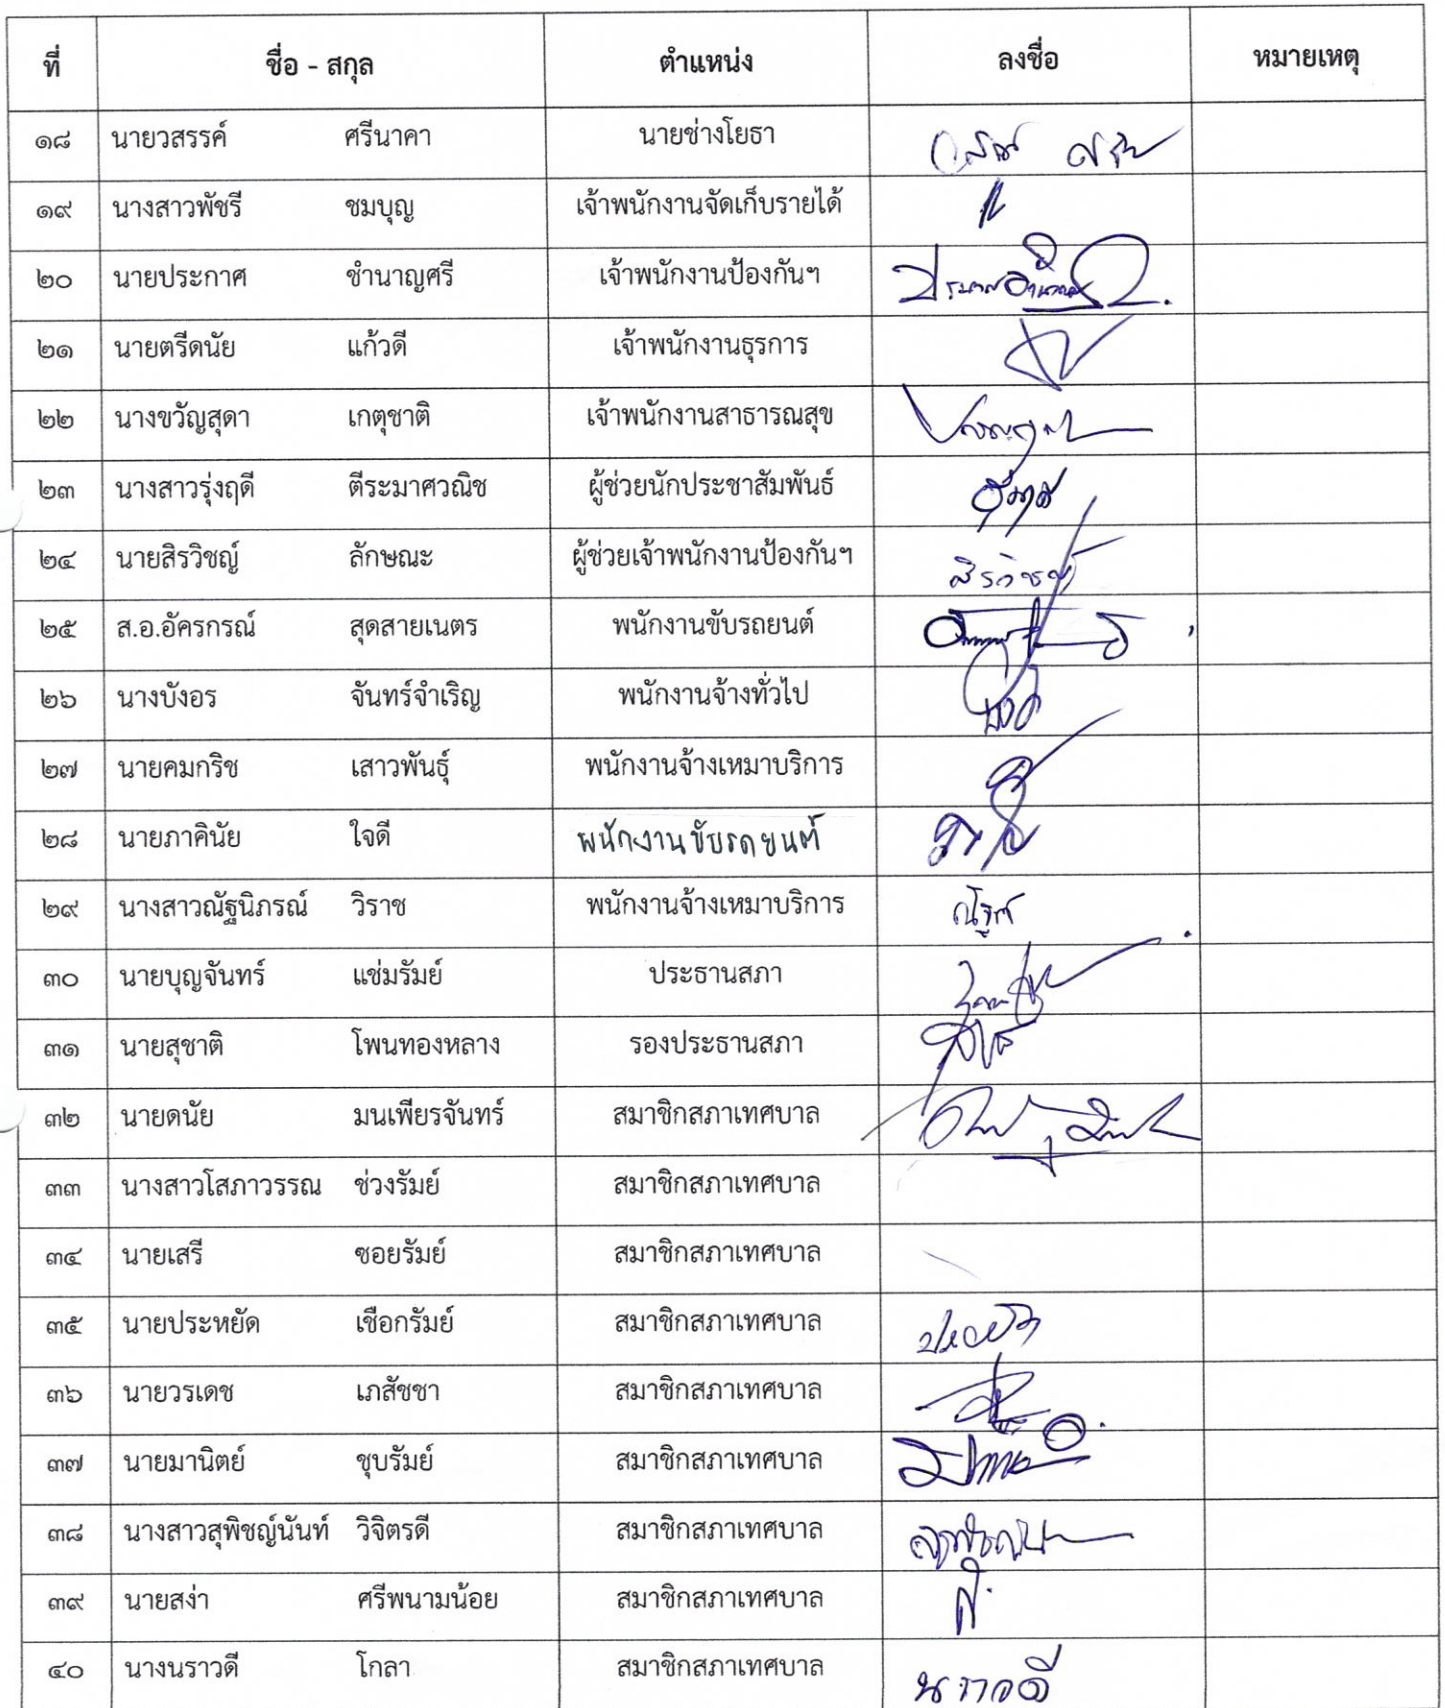 ที่ ชื่อ - สกุล ตำแหน่ง ลงชื่อ หมายเหตุ
๑๘ นายวสรรค์ ศรีนาคา นายช่างโยธา
๑๙ นางสาวพัชรี ชมบุญ เจ้าพนักงานจัดเก็บรายได้
๒๐ นายประกาศ ชำนาญศรี เจ้าพนักงานป้องกันฯ
๒๑ นายตรีดนัย แก้วดี เจ้าพนักงานธุรการ
๒๒ นางขวัญสุดา เกตุชาติ เจ้าพนักงานสาธารณสุข
๒๓ นางสาวรุ่งฤดี ตีระมาศวณิช ผู้ช่วยนักประชาสัมพันธ์
๒๔ นายสิรวิชญ์ ลักษณะ ผู้ช่วยเจ้าพนักงานป้องกันฯ สิรวิชญ์
๒๕ ส.อ.อัครกรณ์ สุดสายเนตร พนักงานขับรถยนต์
๒๖ นางบังอร จันทร์จำเริญ พนักงานจ้างทั่วไป
๒๗ นายคมกริช เสาวพันธุ์ พนักงานจ้างเหมาบริการ
๒๘ นายภาคินัย ใจดี พนักงานขับรถยนต์
๒๙ นางสาวณัฐนิภรณ์ วิราช พนักงานจ้างเหมาบริการ
๓๐ นายบุญจันทร์ แช่มรัมย์ ประธานสภา
๓๑ นายสุชาติ โพนทองหลาง รองประธานสภา
๓๒ นายดนัย มนเพียรจันทร์ สมาชิกสภาเทศบาล
๓๓ นางสาวโสภาวรรณ ช่วงรัมย์ สมาชิกสภาเทศบาล
๓๔ นายเสรี ซอยรัมย์ สมาชิกสภาเทศบาล
๓๕ นายประหยัด เชือกรัมย์ สมาชิกสภาเทศบาล
๓๖ นายวรเดช เภสัชชา สมาชิกสภาเทศบาล
๓๗ นายมานิตย์ ชุบรัมย์ สมาชิกสภาเทศบาล
๓๘ นางสาวสุพิชญ์นันท์ วิจิตรดี สมาชิกสภาเทศบาล
๓๙ นายสง่า ศรีพนามน้อย สมาชิกสภาเทศบาล
๔๐ นางนราวดี โกลา สมาชิกสภาเทศบาล นราวดี